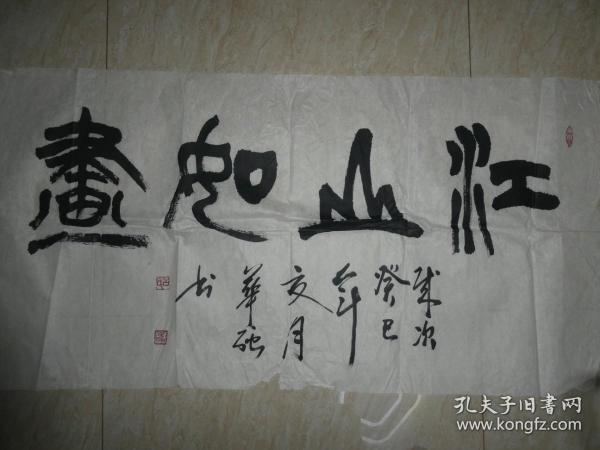 江山如畫
歲次
癸巳
年
亥月
華融
书
孔夫子旧書网
www.kongfz.com